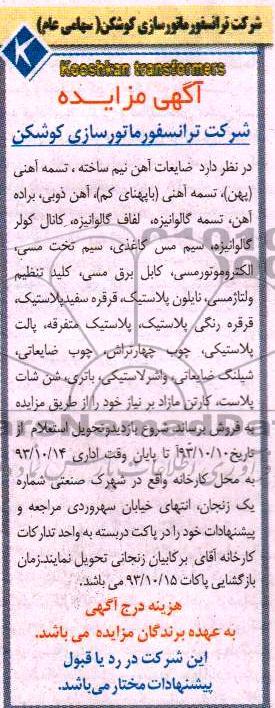 شرکت ترانسفورماتورسازی کوشکن( سهامی عام)
Kooshkan transformers
آگهی مزایده
شرکت ترانسفورماتورسازی کوشکن
در نظر دارد ضایعات آهن نیم ساخته ، تسمه آهنی
(پهن)، تسمه آهنی (باپهنای کم)، آهن ذوبی، براده
آهن، تسمه گالوانیزه، لفاف گالوانیزه، کانال کولر
گالوانیزه، سیم مس کاغذی، سیم تخت مسی،
الکتروموتورمسی، کابل برق مسی، کلید تنظیم
ولتاژمسی، نایلون پلاستیک، قرقره سفیدپلاستیک،
قرقره رنگی پلاستیک، پلاستیک متفرقه، پالت
پلاستیکی، چوب چهارتراش، چوب ضایعاتی،
شیلنگ ضایعاتی، واشرلاستیکی، باتری، شن شات
پلاست، کارتن مازاد بر نیاز خود را از طریق مزایده
به فروش برساند. شروع بازدیدوتحویل استعلام از
تاریخ ۹۳/۱۰/۱۰ تا پایان وقت اداری ۹۳/۱۰/۱۴
به محل کارخانه واقع در شهرک صنعتی شماره
یک زنجان، انتهای خیابان سهروردی مراجعه و
پیشنهادات خود را در پاکت دربسته به واحد تدارکات
کارخانه آقای برکابیان زنجانی تحویل نمایند.زمان
بازگشایی پاکات ۹۳/۱۰/۱۵ می باشد.
هزینه درج آگهی
به عهده برندگان مزایده می باشد.
این شرکت در رد یا قبول
پیشنهادات مختار می‌باشد.